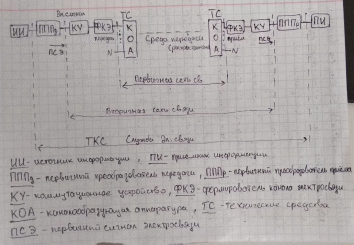 ТС ТС
ИИ ПППд КУ ФКЭ К О А Среда передачи К О А ФКЭ КУ ПППр ПИ
ПСЭ N N ПСЭ
Первичная сеть св.
Вторичная сеть связи
ТКС Служба эл. связи
ИИ - источник информации, ПИ - приемник информации
ПППд - первичный преобразователь передачи, ПППр - первичный преобразователь приема
КУ - коммутационное устройство, ФКЭ - формирователь канала электросвязи
КОА - каналообразующая аппаратура, ТС - технические средства
ПСЭ - первичный сигнал электросвязи